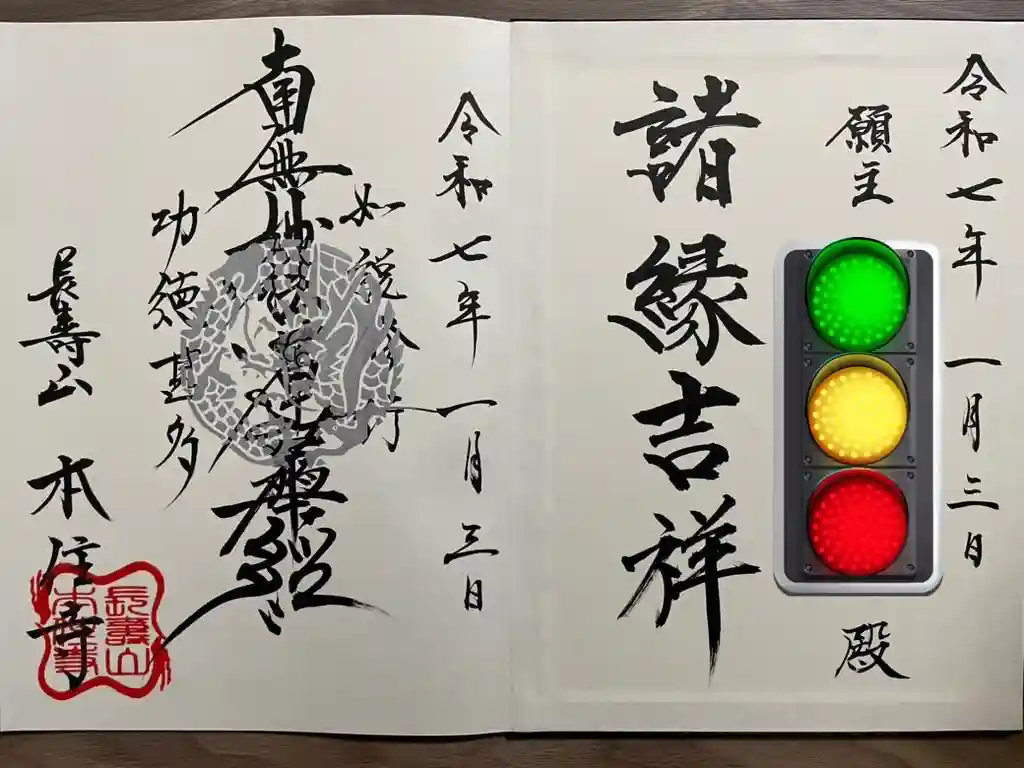 令和七年 一月三日
願主
殿
諸縁吉祥
令和七年 一月三日
如説修行
南無妙法蓮華経
功徳甚多
長寿山 本住寺
長壽山
本住寺